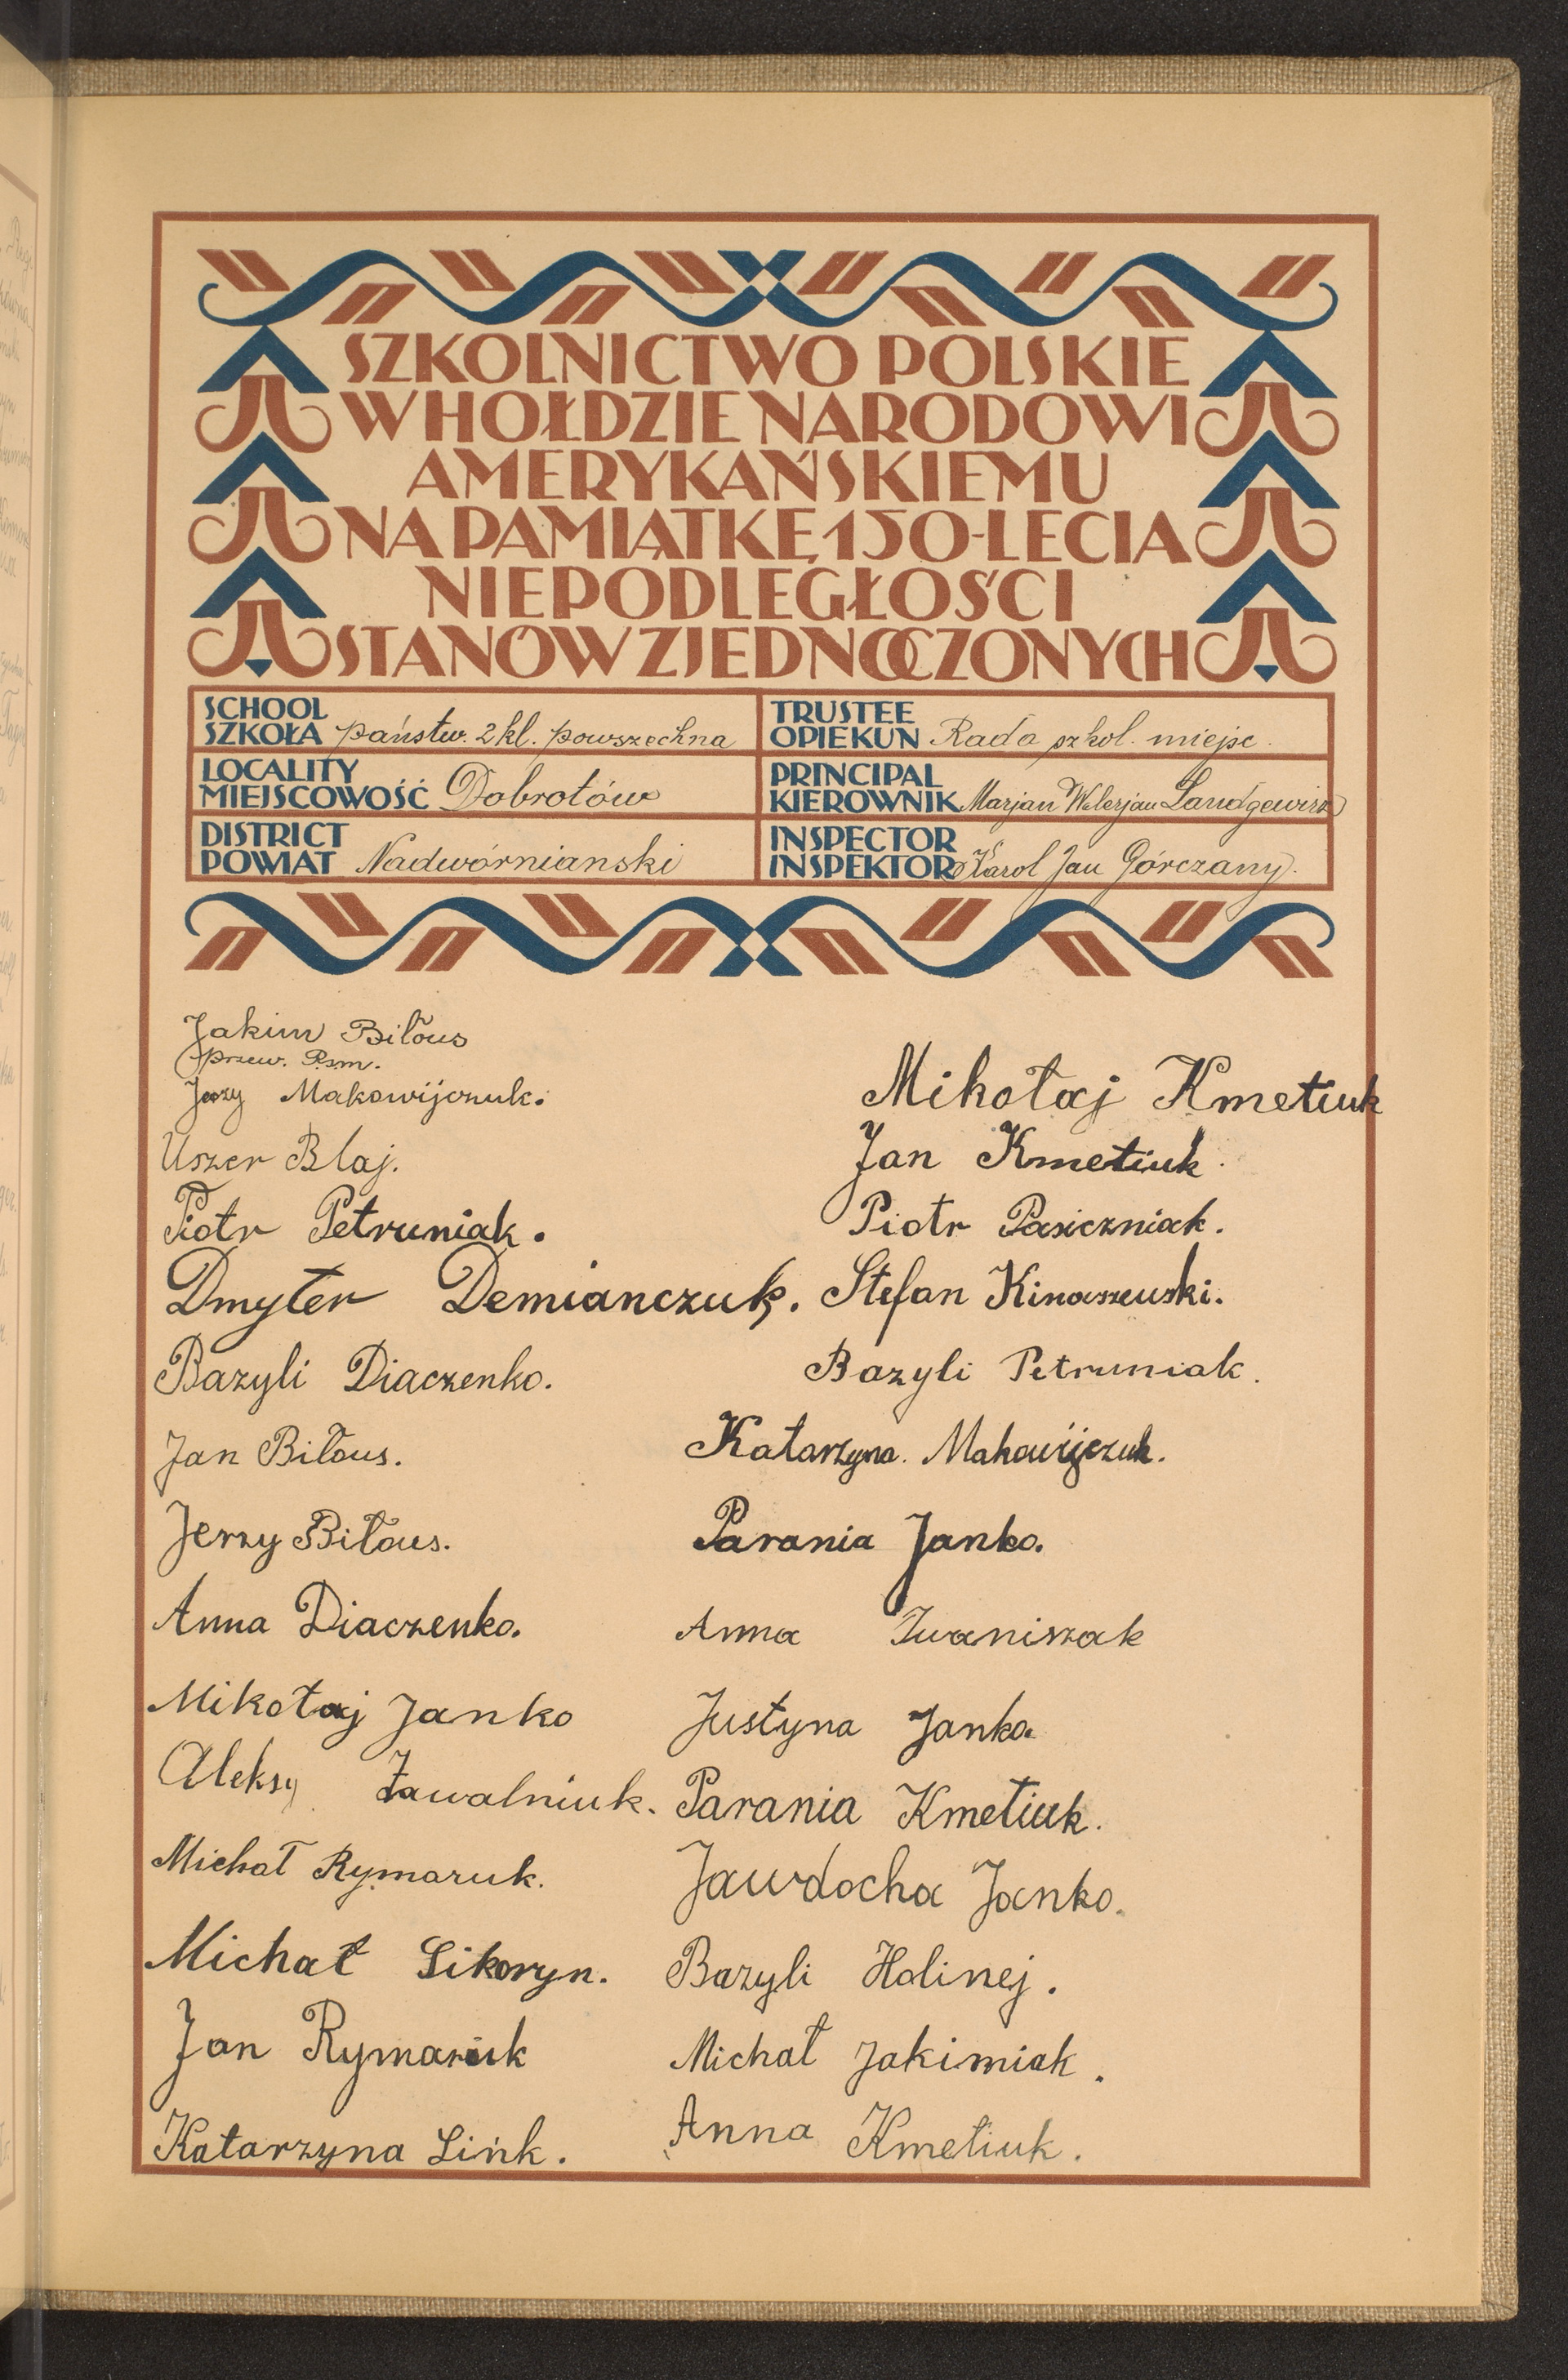 SZKOLNICTWO POLSKIE
W HOŁDZIE NARODOWI
AMERYKAŃSKIEMU
NA PAMIĄTKĘ 150-LECIA
NIEPODLEGŁOŚCI
STANÓW ZJEDNOCZONYCH
SCHOOL
SZKOŁA państw. 2 kl. powszechna
TRUSTEE
OPIEKUN Rada szkol. miejsc.
LOCALITY
MIEJSCOWOŚĆ Dobrotów
PRINCIPAL
KIEROWNIK Marjan Walerjan Landgewirz
DISTRICT
POWIAT Nadwórnianski
INSPECTOR
INSPEKTOR Karol Jan Górczany.
Jakim Biłous
przew. Rsm.
Jerzy Makowijczuk.
Uszer Blaj.
Piotr Petruniak.
Dmyter Demianczuk.
Bazyli Diaczenko.
Jan Biłous.
Jerzy Biłous.
Anna Diaczenko.
Mikołaj Janko
Aleksy Zawalniuk.
Michał Rymaruk.
Michał Sikoryn.
Jan Rymaruk
Katarzyna Link.
Mikołaj Kmetiuk
Jan Kmetiuk.
Piotr Pasiczniak.
Stefan Kinaszewski.
Bazyli Petruniak.
Katarzyna. Makowijczuk.
Parania Janko.
Anna Iwaniszak
Justyna Janko.
Parania Kmetiuk.
Jawdocha Janko.
Bazyli Holinej.
Michał Jakimiak.
Anna Kmetiuk.